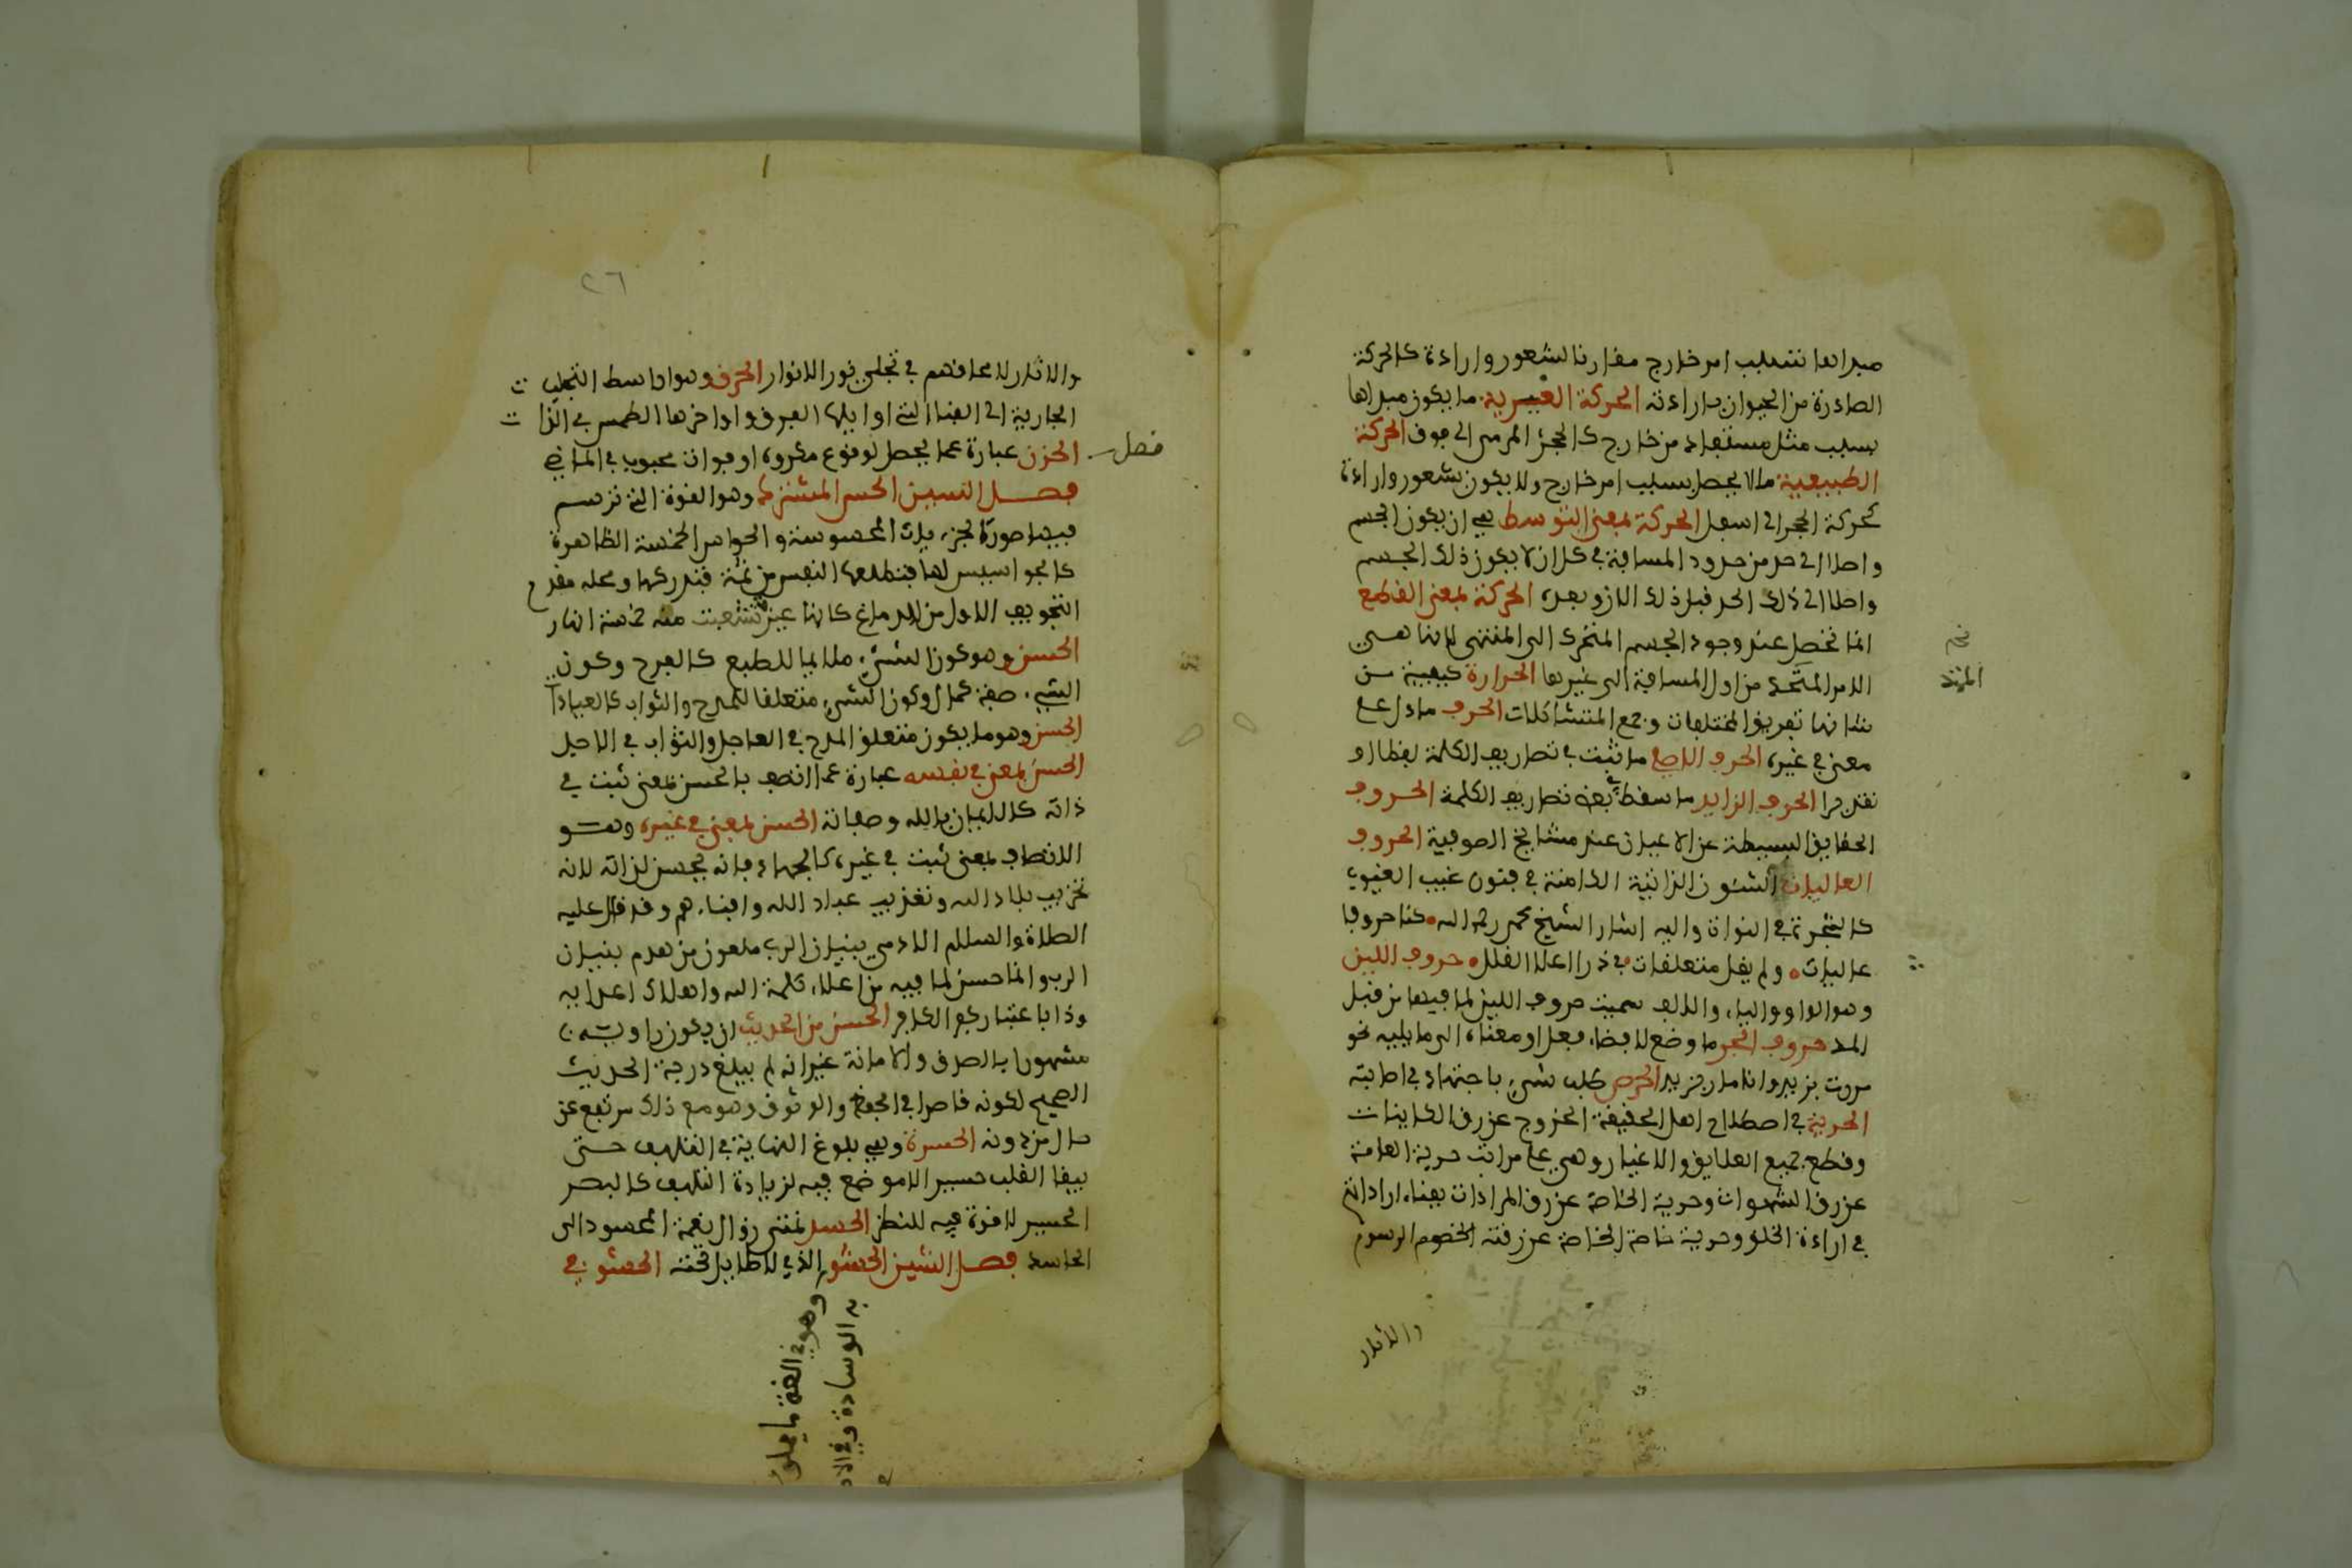 مبداها بسبب امر خارج مقارنا لشعور وارادة كالحركة
الصادرة من الحيوان بارادته الحركة القسرية ما يكون مبداها
بسبب مثل مستفاد من خارج كالحجر المرمى الى فوق الحركة
الطبيعية ما لا يحصل بسبب امر خارج ولا يكون بشعور وارادة
كحركة الحجر الى اسفل الحركة بمعنى التوسط هي ان يكون الجسم
واصلا الى حد من حدود المسافة في كل ان لا يكون ذلك الجسم
واصلا الى ذلك الحد قبل ذلك الان وبعده الحركة بمعنى القطع
انما تحصل عند وجود الجسم المتحرك الى المنتهى لانها هي
الامر الممتد من اول المسافة الى غيرها الحرارة كيفية من
شانها تفريق المختلفات وجمع المتشاكلات الحرف ما دل على
معنى في غيره الحرف الاصلي ما ثبت في تصاريف الكلمة لفظا او
تقديرا الحرف الزايد ما سقط في بعض تصاريف الكلمة الحروف
الحقايق البسيطة عن الاعيان عند مشايخ الصوفية الحروف
العاليات الشئون الذاتية الكامنة في غيب الغيوب
كالشجرة في النوات واليه اشار الشيخ محمد رحمه الله كنا حروفا
عاليات ولم يقل متعلقات في ذرا اعلا القلل حروف اللين
وهو الواو والياء والالف سميت حروف اللين لما فيها من قبل
المد حروف الجر ما وضع لافضاء فعل او معناه الى ما يليه نحو
مررت بزيد وانا مار بزيد الحرص طلب شيء باجتهاد في اصابته
الحرية في اصطلاح اهل الحقيقة الخروج عن رق الكاينات
وقطع جميع العلايق والاغيار وهي على مراتب حرية العامة
عن رق الشهوات وحرية الخاصة عن رق المرادات بفناء ارادتهم
في ارادة الحق وحرية خاصة الخاصة عن رقية الرسوم
والاثار
الممتد
٢٦
والاثار لانمحاقهم في تجلي نور الانوار الحرق وهو اواسط التجليات
الجاربة الى الفنا التي اوايلها البرق واواخرها الطمس في الذات
فصل
الحزن عبارة عما يحصل لوقوع مكروه او فوات محبوب في الماضي
فصل السين الحس المشترك وهو القوة التي ترسم
فيها صورة الجزءيات المحسوسة والحواس الخمسة الظاهرة
كالجواسيس لها فتطلعها النفس من ثمة فتدركها ومحله مقدم
التجويف الاول من الدماغ كانها عين تتشعب منه خمسة انهار
الحسن وهو كون الشيء ملايما للطبع كالفرح وكون
الشيء صفة كمال وكون الشيء متعلقا للمدح والثواب كالعبادات
الحسن وهو ما يكون متعلق المدح في العاجل والثواب في الاجل
الحسن لمعنى في نفسه عبارة عما اتصف بالحسن لمعنى ثبت في
ذاته كالايمان بالله وصفاته الحسن لمعنى في غيره وهو
الاتصاف لمعنى ثبت في غيره كالجهاد فانه يحسن لذاته لانه
تخريب بلاد الله وتعذيب عباد الله وافناءهم وقد قال عليه
الصلاة والسلام الادمي بنيان الرب ملعون من هدم بنيان
الرب وانما حسن لما فيه من اعلاء كلمة الله واهلاك اعدايه
وذا باعتبار كفر الكافر الحسن من الحديث ان يكون راويه
مشهورا بالصدق والامانة غير انه لم يبلغ درجة الحديث
الصحيح لكونه قاصرا في الحفظ والوثوق وهو مع ذلك مرتفع عن
حال من دونه الحسرة وهي بلوغ النهاية في التلهف حتى
يبقا القلب حسيرا لا موضع فيه لزيادة التلهف كالبصر
الحسير لا قوة فيه للنظر الحسد تمنى زوال نعمة المحسود الى
الحاسد فصل الشين الحشو الذي لا طايل تحته الحشو في
وهو في اللغة ما يملؤ
به الوسادة وفي